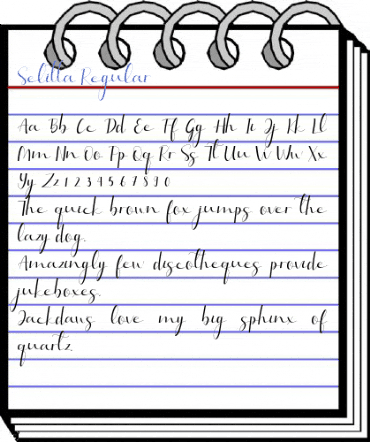 Selitta Regular
Aa Bb Cc Dd Ee Ff Gg Hh Ii Jj Kk Ll
Mm Nn Oo Pp Qq Rr Ss Tt Uu Vv Ww Xx
Yy Zz 1 2 3 4 5 6 7 8 9 0
The quick brown fox jumps over the
lazy dog.
Amazingly few discotheques provide
jukeboxes.
Jackdaws love my big sphinx of
quartz.